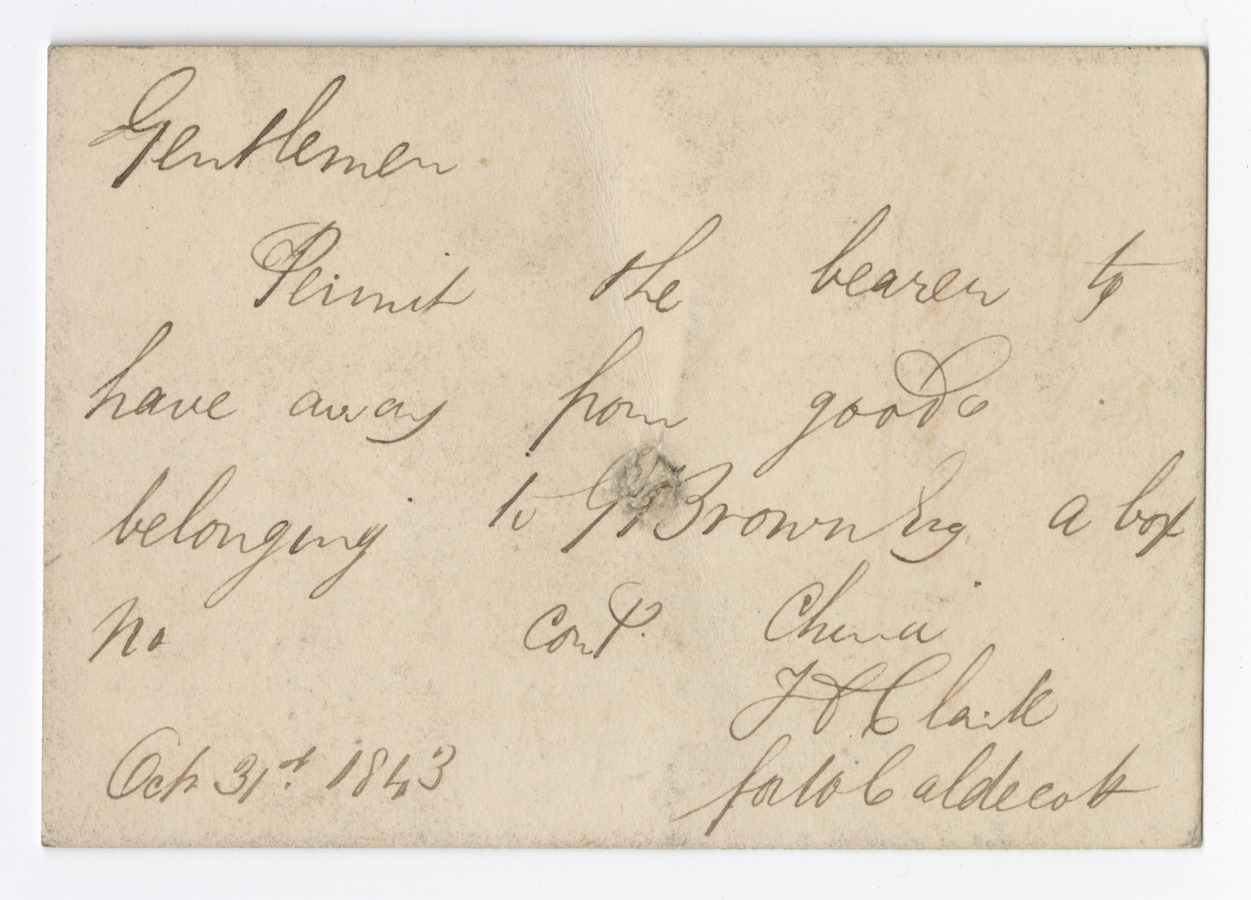 Gentlemen
Permit the bearer to
have away from goods
belonging to Brown Esq a box
No cont. China
Clark
for Caldecott
Oct 31st 1843